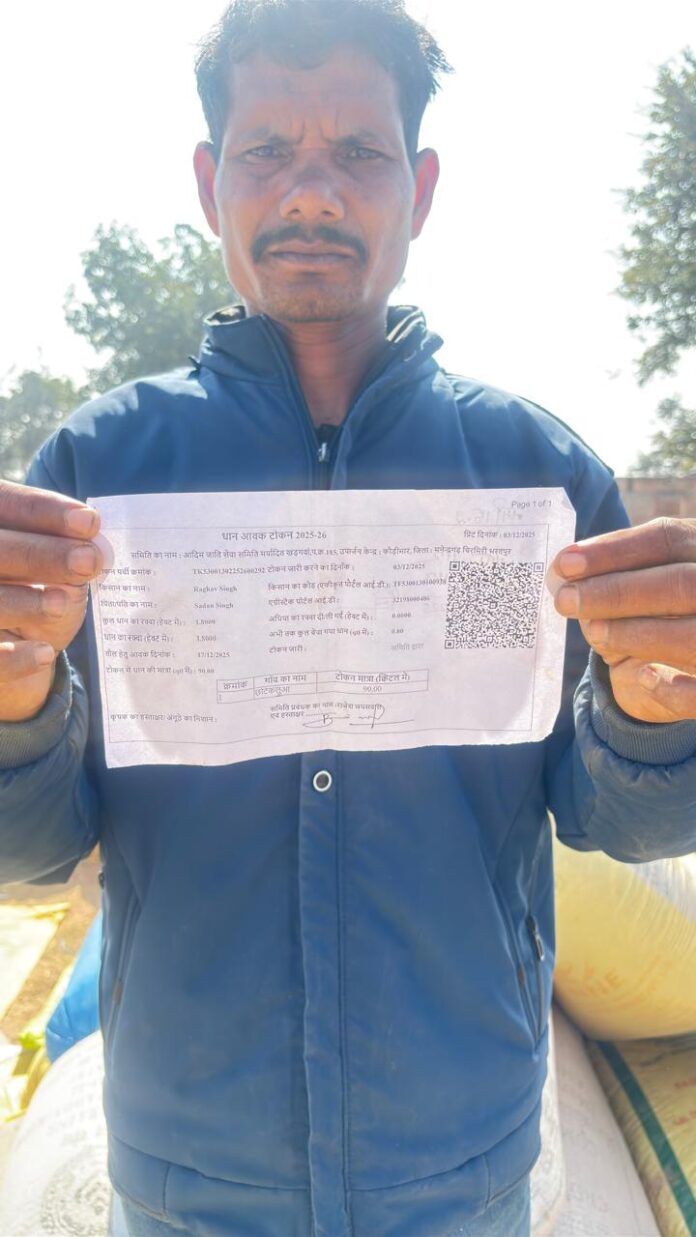 Page 1 of 1
धान आवक टोकन 2025-26
प्रिंट दिनांक : 03/12/2025
समिति का नाम : आदिम जाति सेवा समिति मर्यादित खड़गवां,प.क्र.185, उपार्जन केन्द्र : कोड़ीमार, जिला : मनेन्द्रगढ़ चिरमिरी भरतपुर
टोकन पर्ची क्रमांक : TK53001302252600292 टोकन जारी करने का दिनांक : 03/12/2025
किसान का नाम : Raghav Singh किसान का कोड (एकीकृत पोर्टल आई.डी.):
पिता/पति का नाम : Sadan Singh एग्रीस्टेक पोर्टल आई.डी :
कुल धान का रकबा (हेक्ट में) : 1.8000 अधिया का रकबा दी/ली गई (हेक्ट में) : 0.0000
धान का रकबा (हेक्ट में) : 1.8000 अभी तक कुल बेचा गया धान (q0 में) : 0.00
तौल हेतु आवक दिनांक : 17/12/2025 टोकन जारी : समिति द्वारा
टोकन में धान की मात्रा (q0 में): 90.00
क्रमांक गाँव का नाम टोकन मात्रा (क्विंटल में)
1 90.00
समिति प्रबंधक का नाम
एवं हस्ताक्षर
कृषक का हस्ताक्षर/ अंगूठे का निशान :